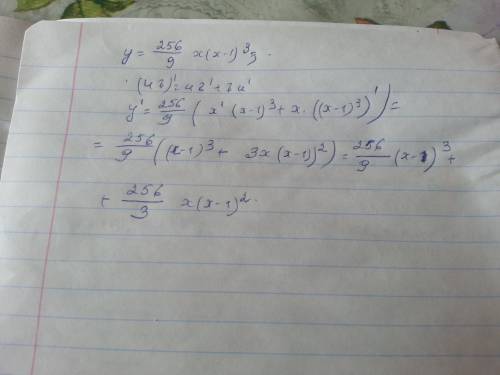 y = 256/9 x(x-1)³;
(uv)' = uv' + vu'
y' = 256/9 (x' (x-1)³ + x·((x-1)³)') =
= 256/9 ((x-1)³ + 3x(x-1))²) = 256/9 (x-1)³ +
+ 256/3 x(x-1)².